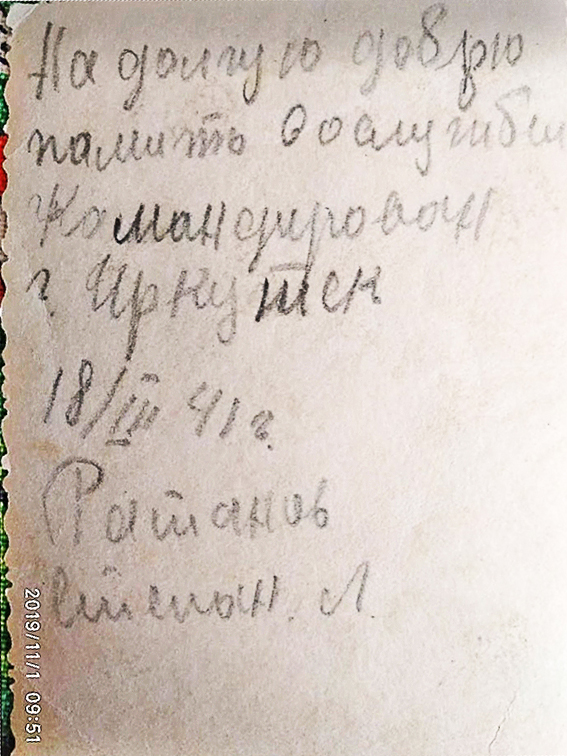 На долгую добрю
память
Командирован
г. Иркутск
18/III 41 г.
Ратанов
Степан. Л.
2019/11/1 09:51